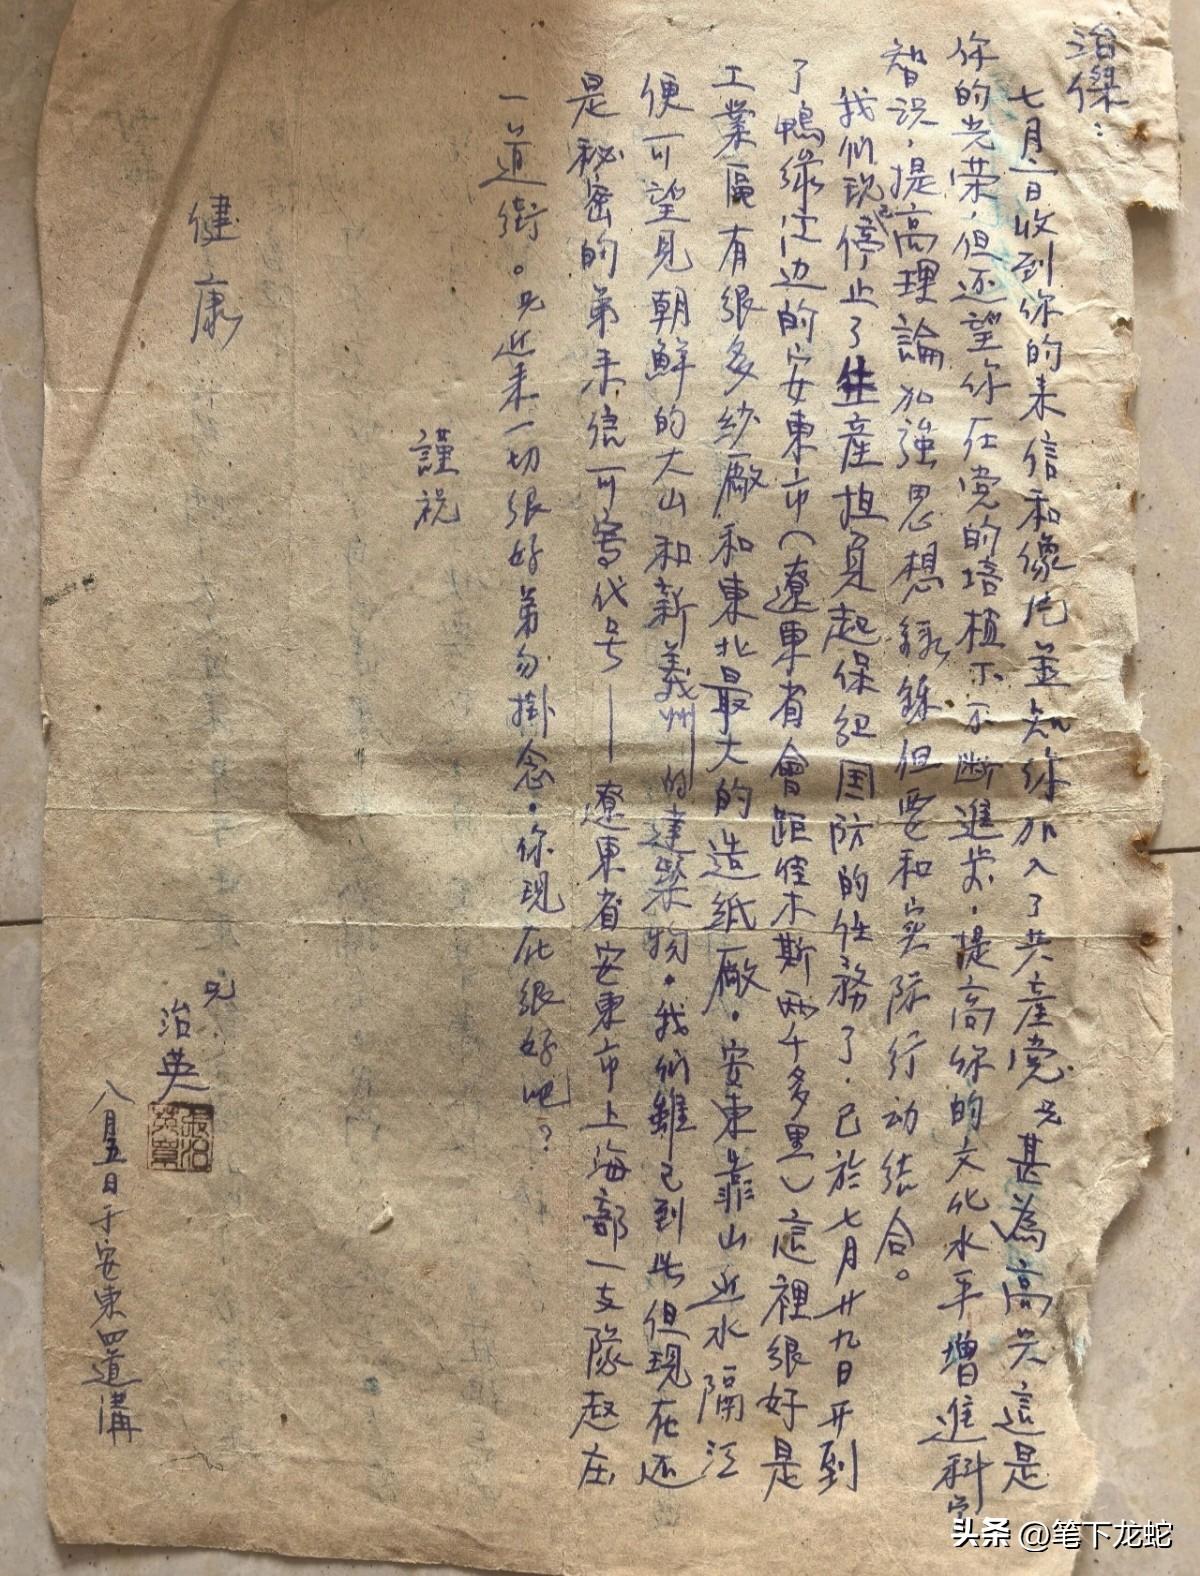 治傑：
七月三日收到你的来信和像片並知你加入了共產党兄甚為高兴這是
你的光荣，但还望你在党的培植下不断進步，提高你的文化水平增進科学
智识，提高理論加強思想鍛鍊但要和实际行动结合。
我们现已停止了生產担負起保纽国防的任務了．已於七月廿九日开到
了鴨緑江边的安東市（遼東省會距佳木斯两千多里）這裡很好是
工業區有很多纱廠和東北最大的造紙廠。安東靠山近水隔江
便可望見朝鮮的大山和新義州的建築物。我们雖已到此但現在还
是秘密的弟来信可寄代号——遼東省安東市上海部一支隊赵庄
一道街。兄近来一切很好弟勿掛念。你現在很好吧？
謹祝
健康
兄 治英
八月五日于安東四道溝
头条 @笔下龙蛇